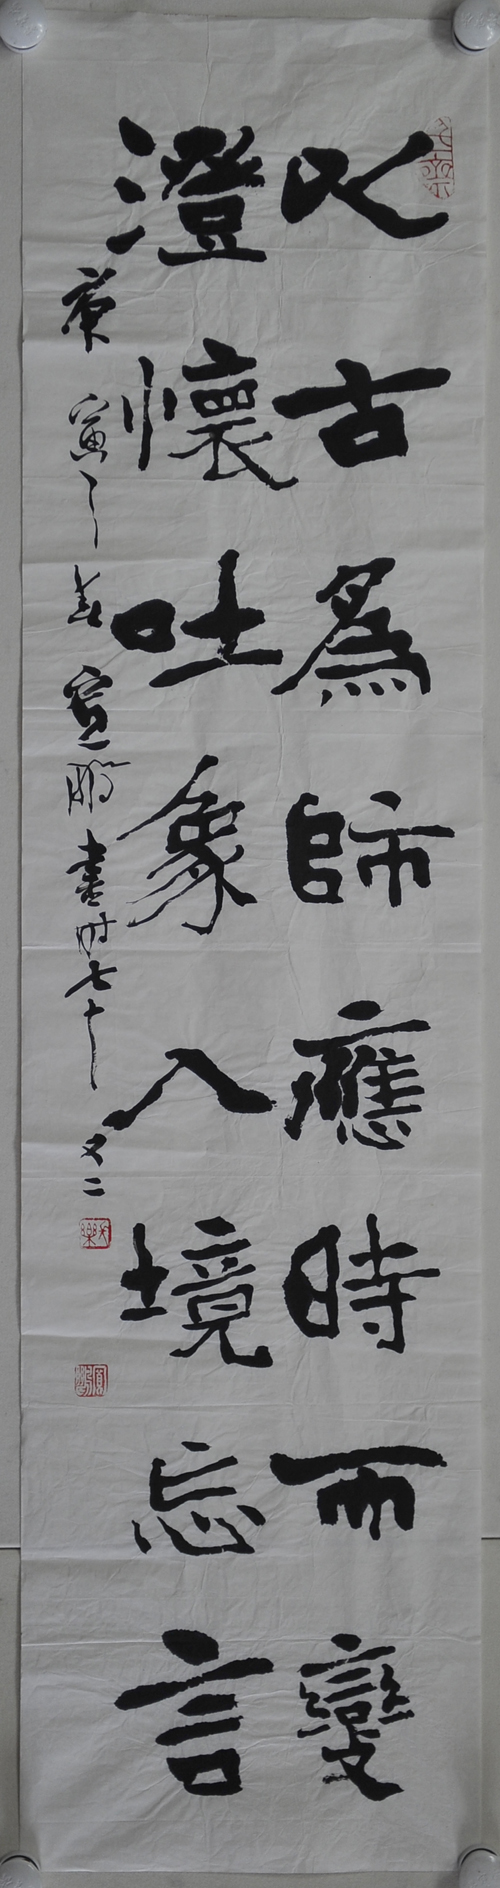 以古爲師應時而變
澄懷吐象入境忘言
庚寅之春宣鵬書時七十又二